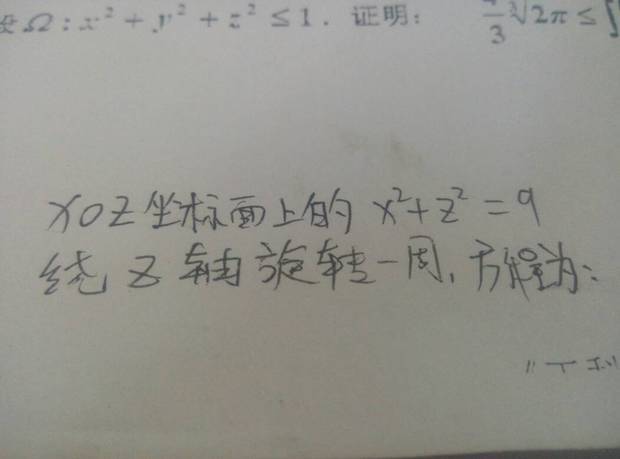 Ω : x² + y² + z² ≤ 1 . 证明： 3 ∛2π ≤ ∫
XOZ坐标面上的 x²+z²=9
绕Z轴旋转一周，方程为：